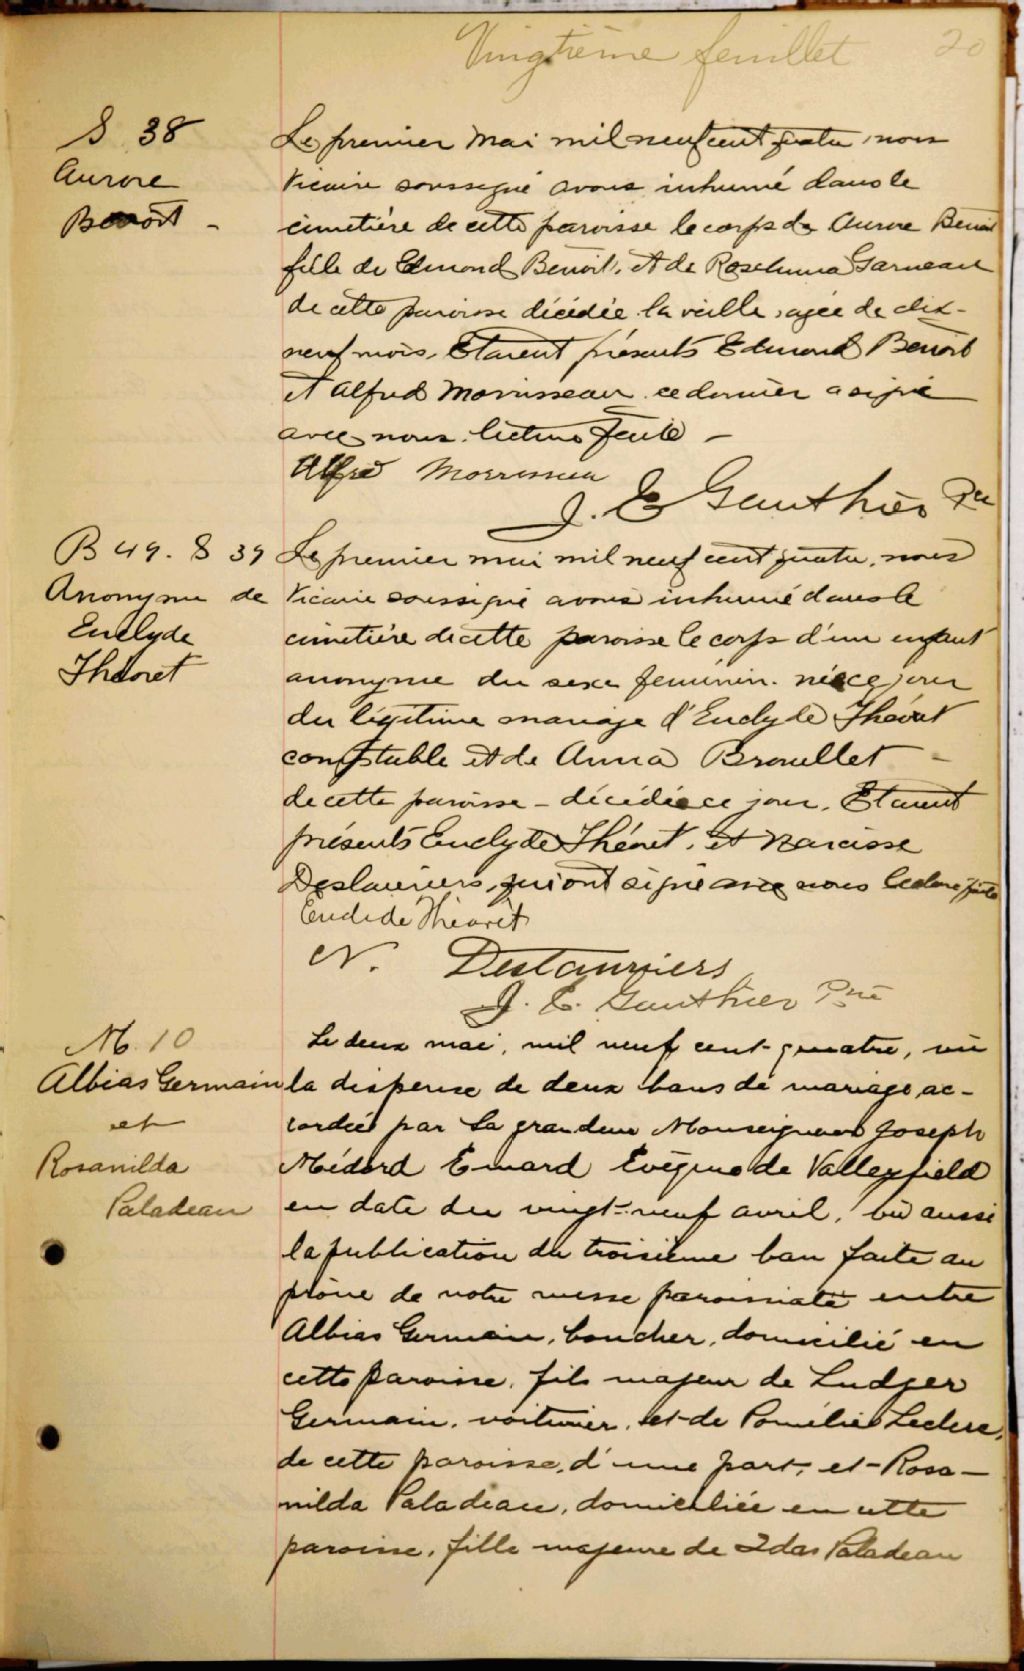 Vingtième feuillet 20
S 38
Aurore
Benoît -
Le premier mai mil neuf cent quatre, nous
Vicaire soussigné avons inhumé dans le
cimetière de cette paroisse le corps de Aurore Benoit
fille de Edmond Benoit, et de Roselma Garneau
de cette paroisse décédée la veille, agée de dix-
neuf mois. Etaient présents Edmond Benoit
et Alfred Morrisseau ce dernier a signé
avec nous. lecture faite -
Alfred Morrisseau
J. E Gauthier Ptre
B 49. S 39
Anonyme de
Euclyde
Théoret
Le premier mai mil neuf cent quatre, nous
Vicaire soussigné avons inhumé dans le
cimetière de cette paroisse le corps d'un enfant
anonyme du sexe feminin. née ce jour
du légitime mariage d'Euclyde Théoret
constable et de Anna Brouillet -
de cette paroisse - décédée ce jour. Etaient
présents Euclyde Théoret, et Narcisse
Deslauriers, qui ont signé avec nous lecture faite
Euclide Théorêt
N. Deslauriers
J. E. Gauthier Ptre
M. 10
Albias Germain
et
Rosanilda
Paladeau
Le deux mai, mil neuf cent quatre, vu
la dispense de deux bans de mariage ac-
cordée par Sa grandeur Monseigneur Joseph
Médard Emard Evêque de Valleyfield
en date du vingt-neuf avril, vu aussi
la publication du troisième ban faite au
prône de notre messe paroissiale entre
Albias Germain, boucher, domicilié en
cette paroisse, fils majeur de Ludger
Germain, voiturier, et de Pomélie Leclerc,
de cette paroisse, d'une part, et Rosa-
nilda Paladeau, domiciliée en cette
paroisse, fille majeure de Idas Paladeau